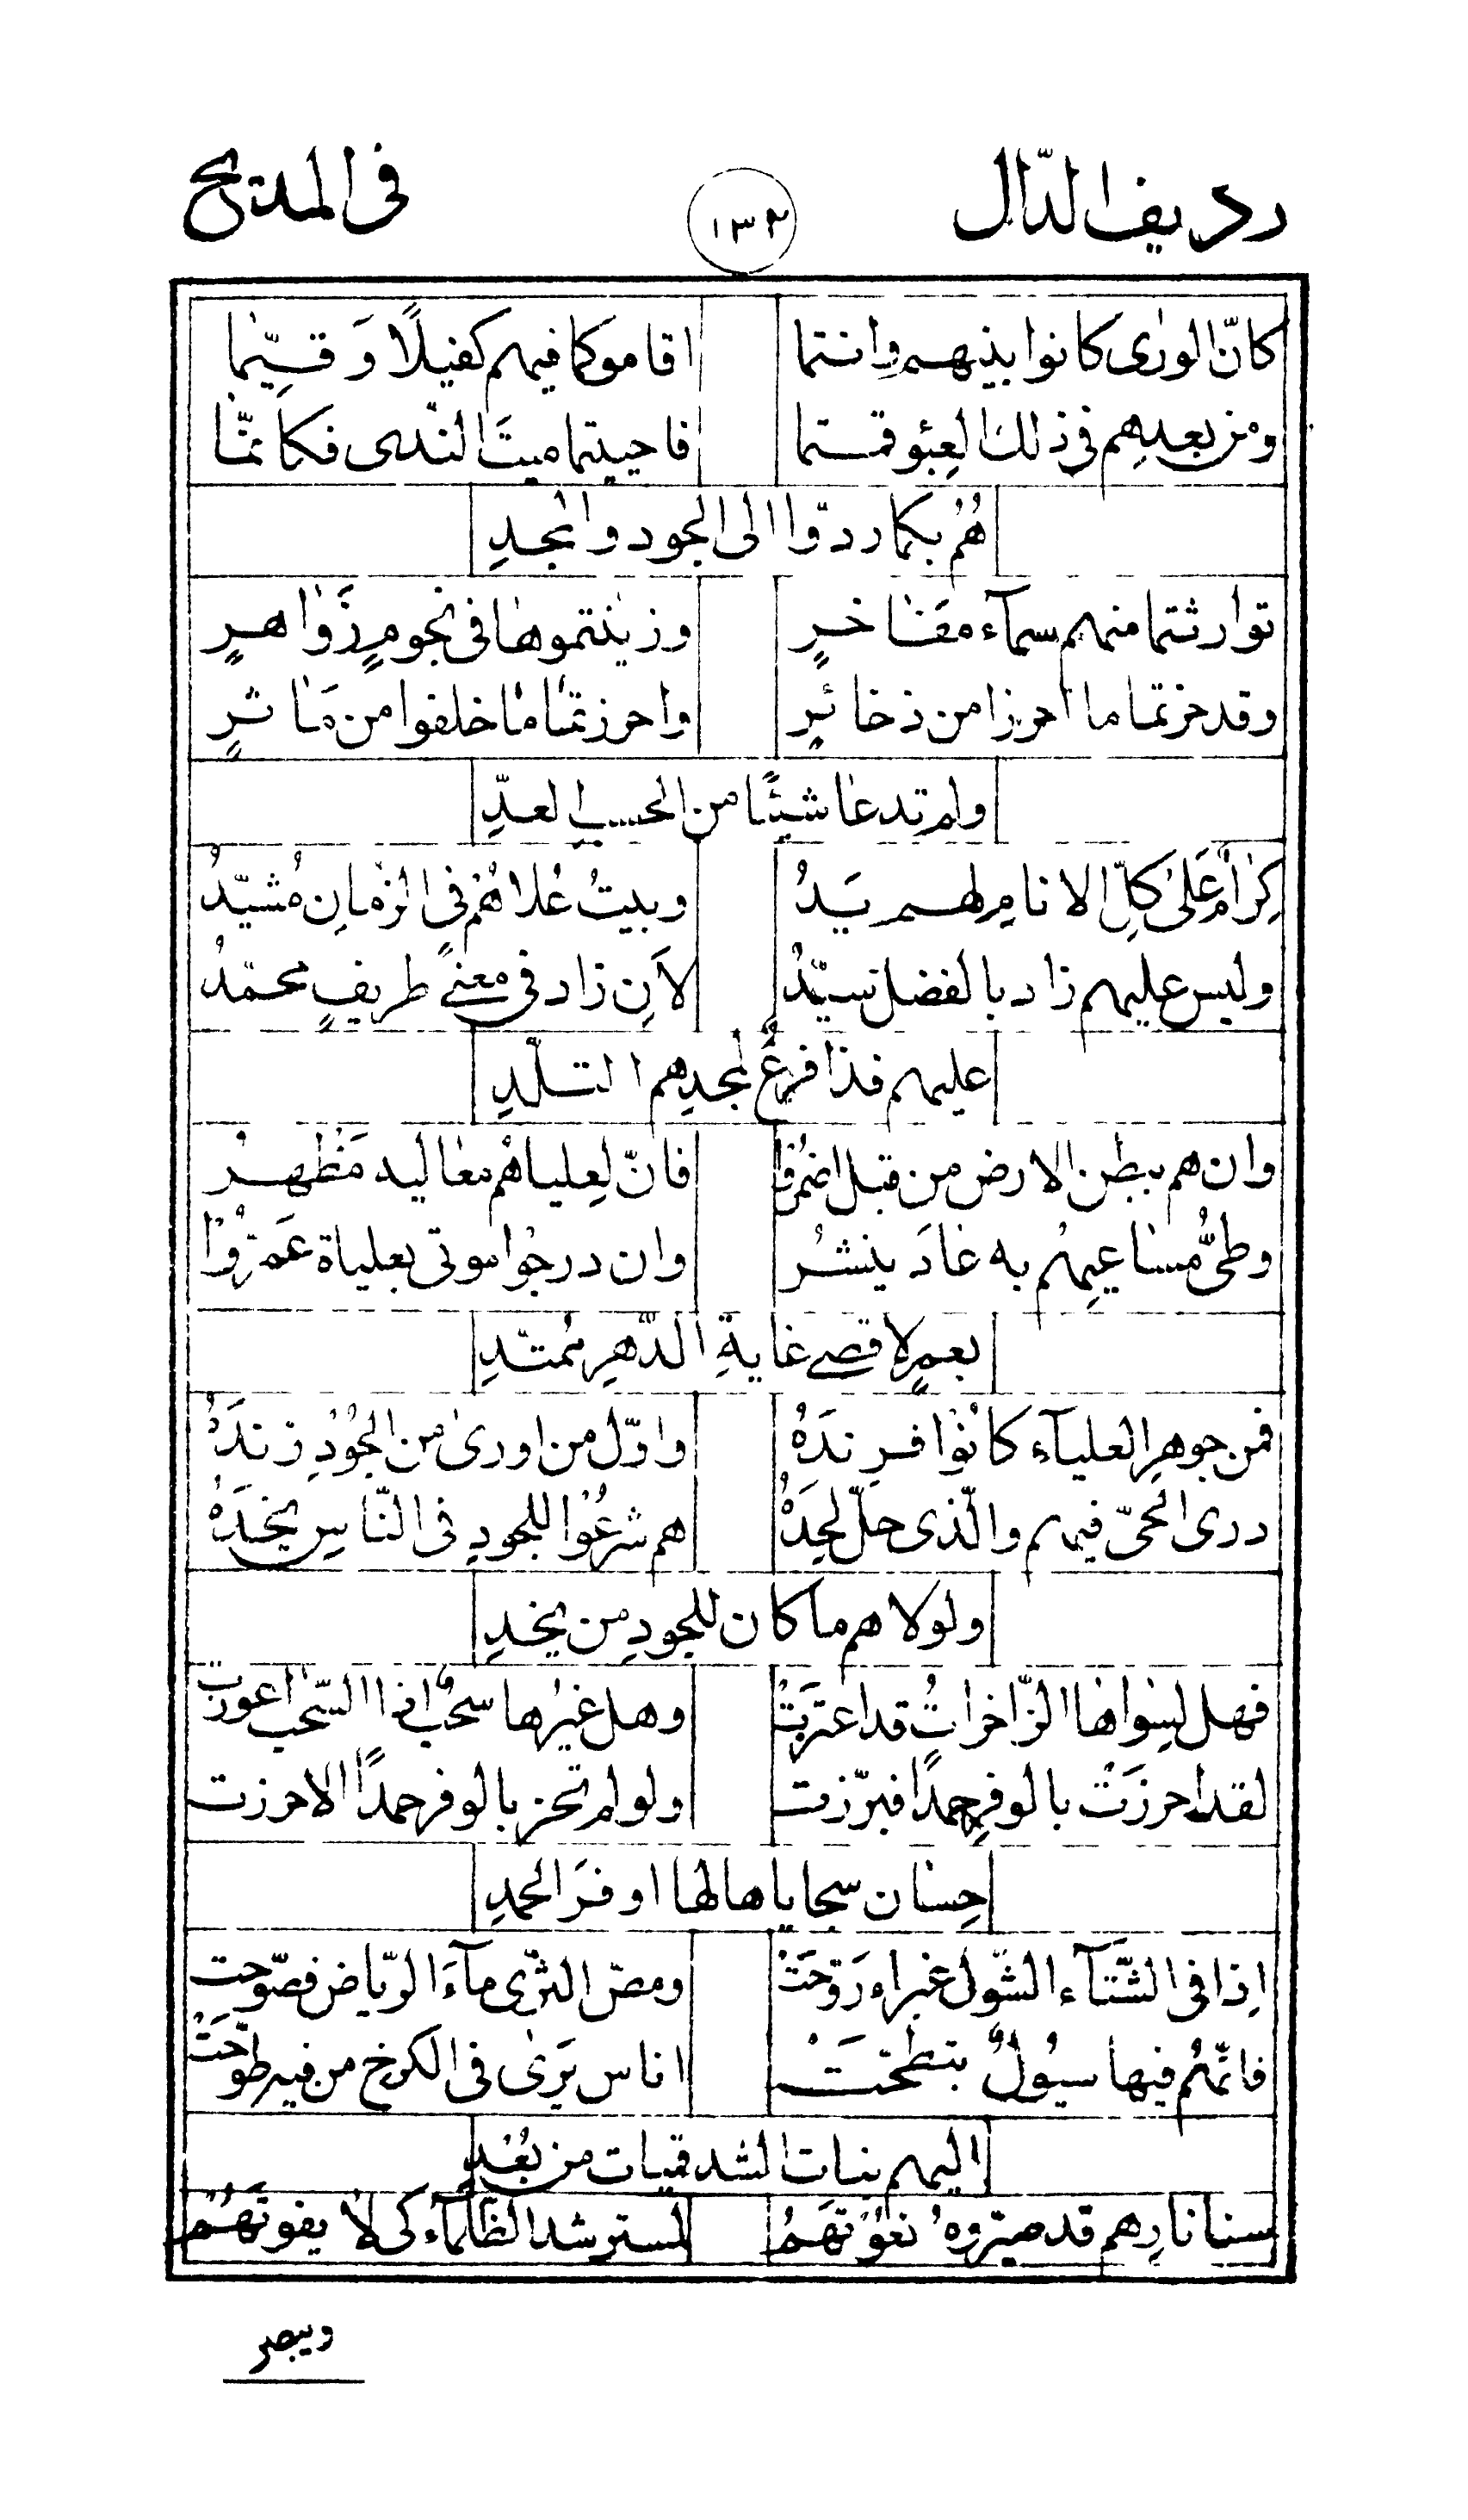 رديف الدّال ١٣٢ فى المديح
كانّ الورٰى كانوا بذيهم وانتما اقاموكما فيهم كفيلًا وَقيّمٰا
ومن بعدهم فى ذلك العبئو قمتما فاحييتما ميتَ النّدى فكانمّا
هُمُ بكما ردّوا الى الجود والمجدِ
توارثتما منهم سمآء مفٰاخرٍ وزيّنتموهٰا فى نجومٍ زَوٰاهرٍ
وقد حزتما ما احرزا من ذخائرٍ واحرزتمٰا مٰا خلفوا من مَاٰثرٍ
ولم تدعٰا شيئًا من الحسب العدِّ
كِرٰامٌ عَلىٰ كلِّ الانامِ لهم يَدُ وبيتُ عُلاهُمْ فى الزمٰانِ مُشيّدُ
وليس عليهم زاد بالفضل سيّدُ لاَن زاد فى معنىً طريفٍ محمّدُ
عليهم فذا فرعٌ لمجدِهم التلّدِ
وان هم ببطن الارض من قبل اضمُروا فانّ لعلياهُم معٰاليه مَظهرُ
وطىُّ مسٰاعيهُم به عٰادَ ينشرُ وان درجُوا موتى بعلياة عَمرُوا
بعمرٍ لاقصى غايةِ الدّهرِ ممُتدِّ
فمن جوهرِ العليآء كانُوا فرِندَهُ واوّل من اورىٰ من الجُودِ زندَهُ
درى الحىّ فيهم والّذى حلّ لحدَهُ هم شرعُوا للجودِ فى النّاسِ نجدَهُ
ولولاهم ما كان للجودِ من نجدِ
فهل لسِوٰاهٰا الزّاخراتُ قد اعتزَتْ وهل غيرُها سحُبٌ اذا السّحب اعوزت
لقد احرزَتْ بالوفرِ حمدًا فبرّزت ولو لم تحز بالوفر حمدًا لاحرزت
حِسٰان سجاياها لها اوفرَ الحمدِ
اِذا فى الشّتآء الشّول غبراء رَوّحَتْ ومصّ الثرى مآءَ الرّياض فصّوحت
فانّهُم فيها سيُولٌ تبطّحَتْ اناس يَرىٰ فى الكرخ من فيه طوّحَتْ
اليهم بنات الشدقميات من بُعْدِ
سنا نارِهم قد صيّروهُ نعُوتهَمُ لمسترشد الظّلمآء كى لا يفوتهَمُ
ويبصر